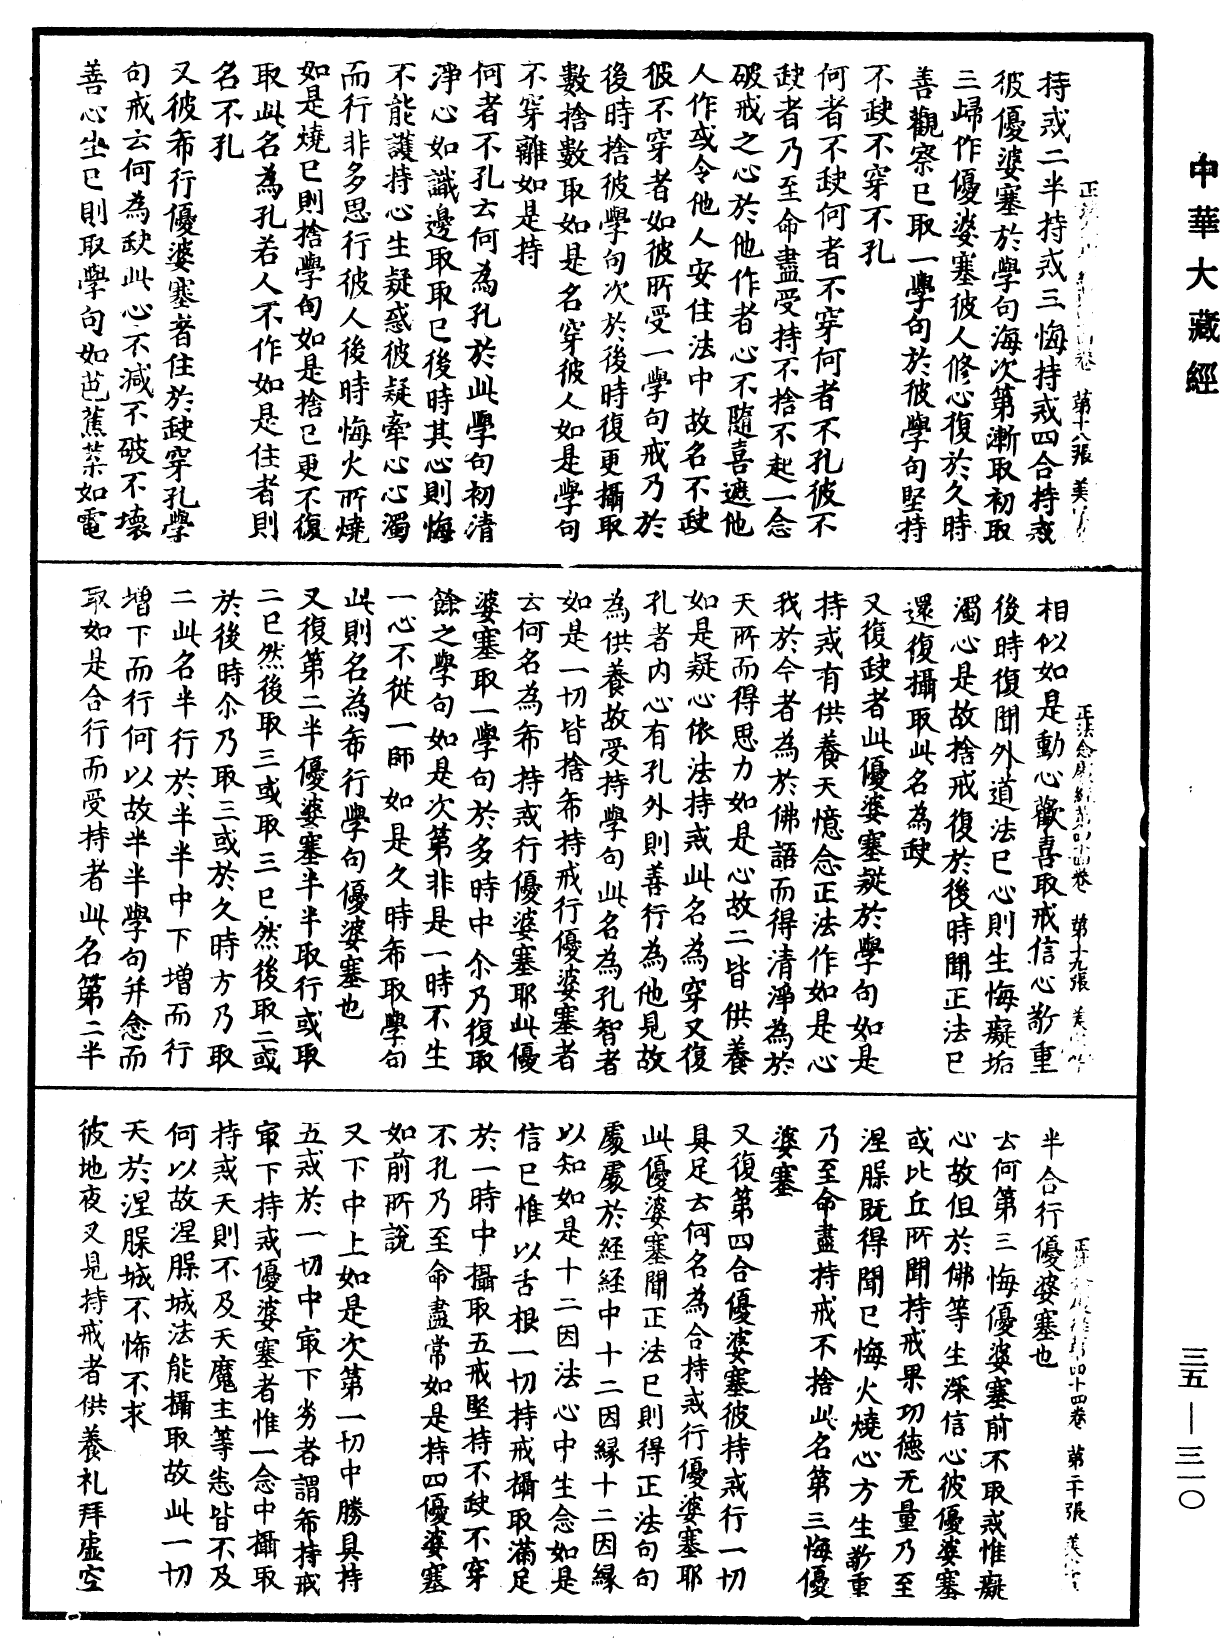 中華大藏經
第十八張
持戒二半持戒三悔持戒四合持戒
彼優婆塞於學句海次第漸取初取
三歸作優婆塞彼人修心復於久時
善觀察已取一學句於彼學句堅持
不缺不穿不孔
何者不缺何者不穿何者不孔彼不
缺者乃至命盡受持不捨不起一念
破戒之心於他作者心不隨喜遮他
人作或令他人安住法中故名不缺
彼不穿者如彼所受一學句戒乃於
後時捨彼學句次於後時復更攝取
數捨數取如是名穿彼人如是學句
不穿離如是持
何者不孔云何為孔於此學句初清
淨心如識邊取取已後時其心則悔
不能護持心生疑惑彼疑牽心心濁
而行非多思行彼人後時悔火所燒
如是燒已則捨學句如是捨已更不復
取此名為孔若人不作如是住者則
名不孔
又彼希行優婆塞者住於缺穿孔學
句戒云何為缺此心不減不破不壞
善心坐已則取學句如芭蕉葉如電
正法念處經第四十四卷 第十九張
相似如是動心歡喜取戒信心敬重
後時復聞外道法已心則生悔癡垢
濁心是故捨戒復於後時聞正法已
還復攝取此名為缺
又復缺者此優婆塞疑於學句如是
持戒有供養天憶念正法作如是心
我於今者為於佛語而得清淨為於
天所而得思力如是心故二皆供養
如是疑心依法持戒此名為穿又復
孔者內心有孔外則善行為他見故
為供養故受持學句此名為孔智者
如是一切皆捨希持戒行優婆塞者
云何名為希持戒行優婆塞耶此優
婆塞取一學句於多時中尒乃復取
餘之學句如是次第非是一時不生
一心不從一師如是久時希取學句
此則名為希行學句優婆塞也
又復第二半優婆塞半半取行或取
二已然後取三或取三已然後取二或
於後時尒乃取三或於久時方乃取
二此名半行於半半中下增而行
增下而行何以故半半學句并念而
取如是合行而受持者此名第二半
正法念處經第四十四卷 第二十張
半合行優婆塞也
云何第三悔優婆塞前不取戒惟癡
心故但於佛等生深信心彼優婆塞
或比丘所聞持戒果功德无量乃至
涅槃既得聞已悔火燒心方生敬重
乃至命盡持戒不捨此名第三悔優
婆塞
又復第四合優婆塞彼持戒行一切
具足云何名為合持戒行優婆塞耶
此優婆塞聞正法已則得正法句句
處處於經經中十二因緣十二因緣
以知如是十二因法心中生念如是
信已惟以舌根一切持戒攝取滿足
於一時中攝取五戒堅持不缺不穿
不孔乃至命盡常如是持四優婆塞
如前所說
又下中上如是次第一切中勝具持
五戒於一切中㝡下劣者謂希持戒
㝡下持戒優婆塞者惟一念中攝取
持戒天則不及天魔主等悉皆不及
何以故涅槃城法能攝取故此一切
天於涅槃城不怖不求
彼地夜叉見持戒者供養礼拜虛空
三五—三一〇